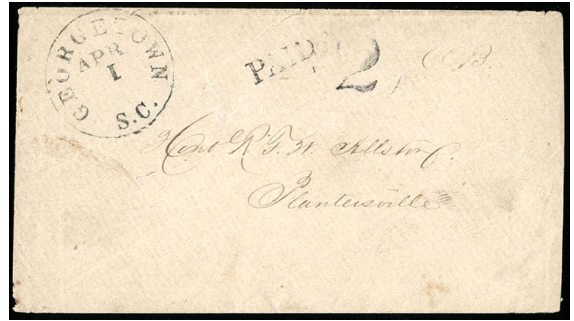 GEORGETOWN S.C.
APR
1
PAID
2
CB.
Hon R F. W. Allston
Plantersville